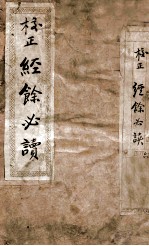 校正經餘必讀
校正 經餘必讀